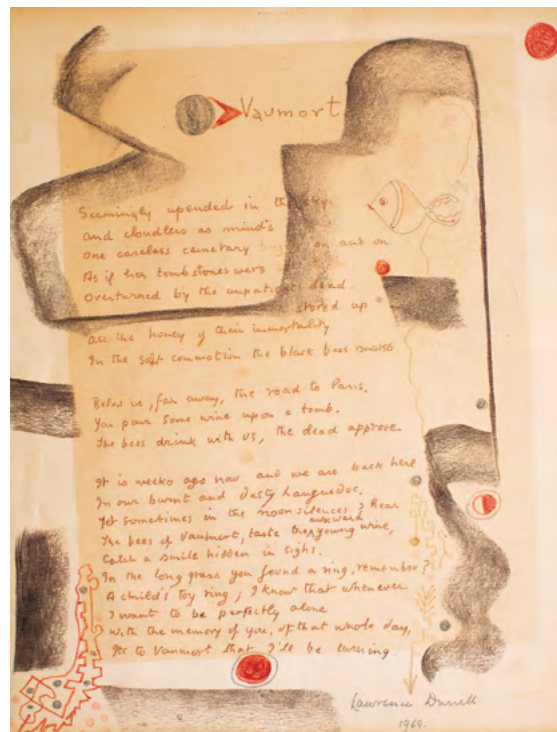 Vaumort.
Seemingly upended in the sky,
and cloudless as mind's
one careless cemetary buzzes on and on
As if her tombstones were
Overturned by the impatient dead
stored up
all the honey of their immortality
In the soft commotion the black bees make
Below us, far away, the road to Paris.
You pour some wine upon a tomb.
The bees drink with us, the dead approve.
It is weeks ago now and we are back here
In our burnt and dusty Languedoc,
Yet sometimes in the noon silences I hear
The bees of Vaumort, taste the awkward young wine,
Catch a smile hidden in sighs.
In the long grass you found a ring, remember?
A child's toy ring; I know that whenever
I want to be perfectly alone
With the memory of you, of that whole day,
Its to Vaumort that I'll be turning.
Lawrence Durrell
1969.